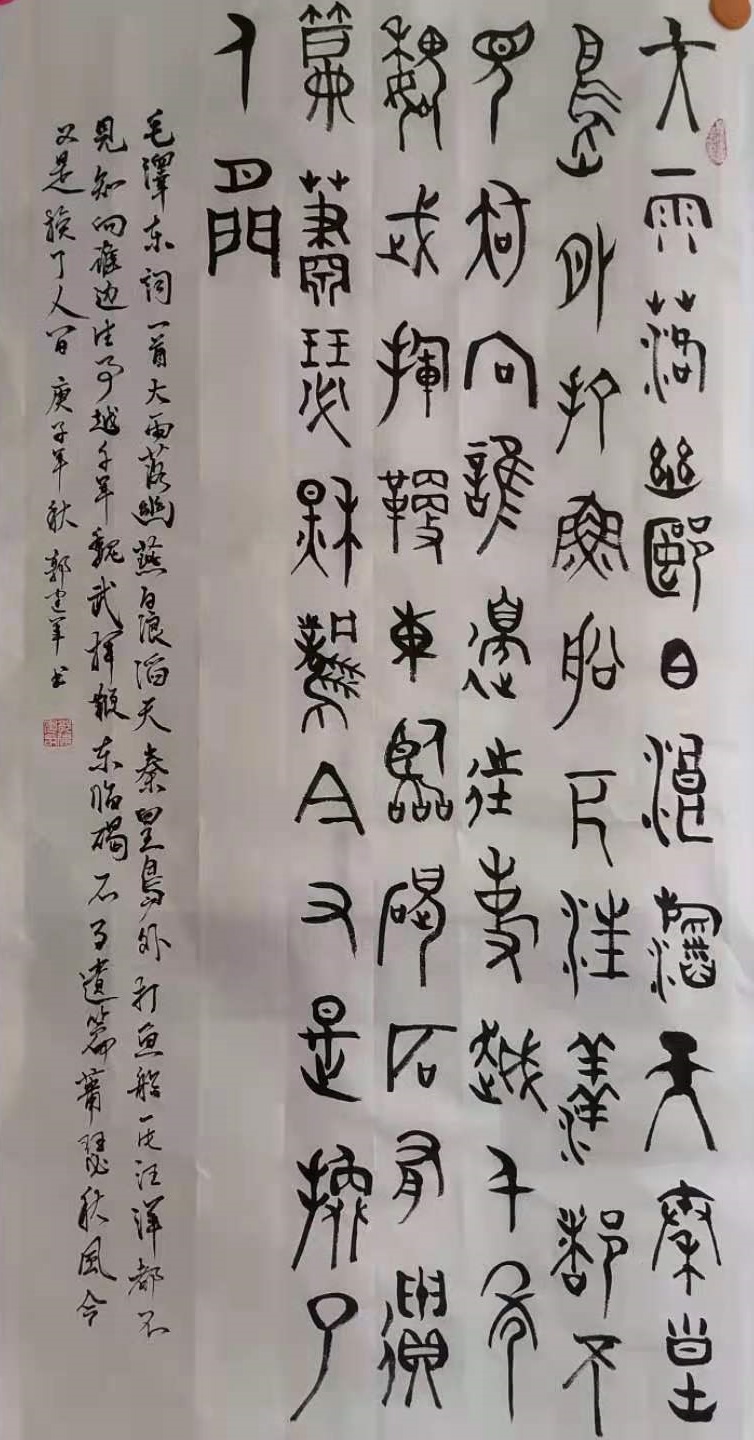 大雨落幽燕白浪滔天秦皇
島外打魚船一片汪洋都不
見知向誰邊往事越千年
魏武揮鞭東臨碣石有遺
篇蕭瑟秋風今又是換了
人間
毛澤东詞一首大雨落幽燕白浪滔天秦皇島外打魚船一片汪洋都不
見知向誰边往事越千年魏武揮鞭东临碣石有遺篇蕭瑟秋風今
又是換了人间庚子年秋郭建军书